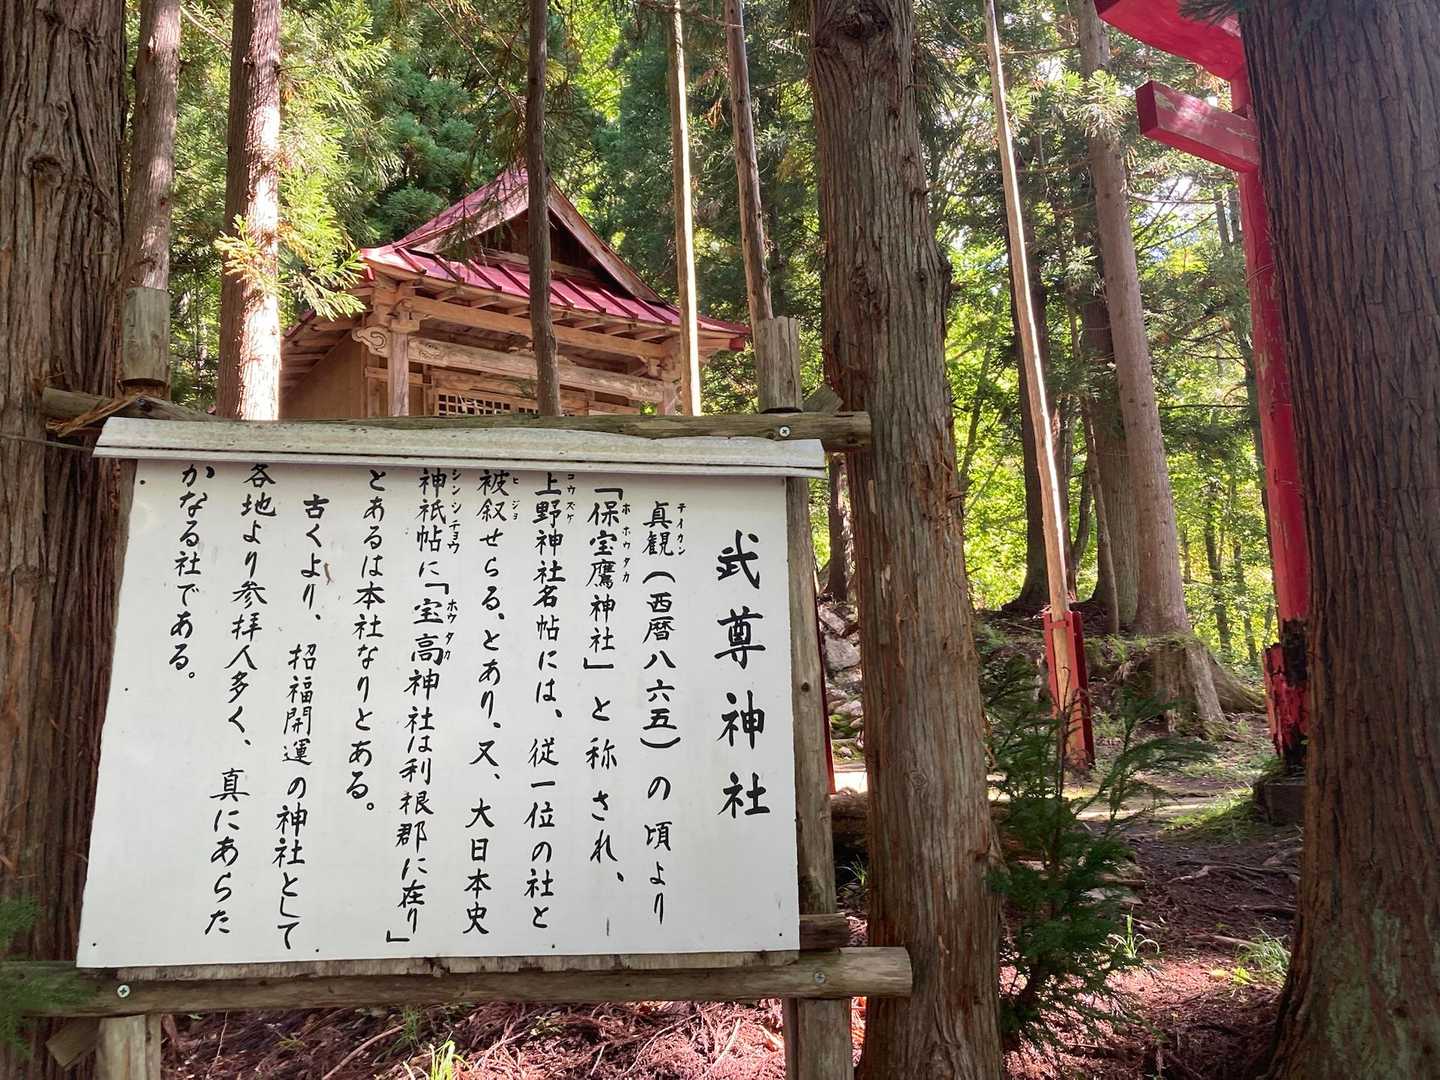 武尊神社
貞観（西暦八六五）の頃より
「保宝鷹神社」と称され、
上野神社名帖には、従一位の社と
被叙せらる、とあり、又、大日本史
神祇帖に「宝高神社は利根郡に在り」
とあるは本社なりとある。
古くより、招福開運の神社として
各地より参拝人多く、真にあらた
かなる社である。
テイカン
ホホウタカ
コウズケ
ヒジョ
シンシチョウ
ホウタカ